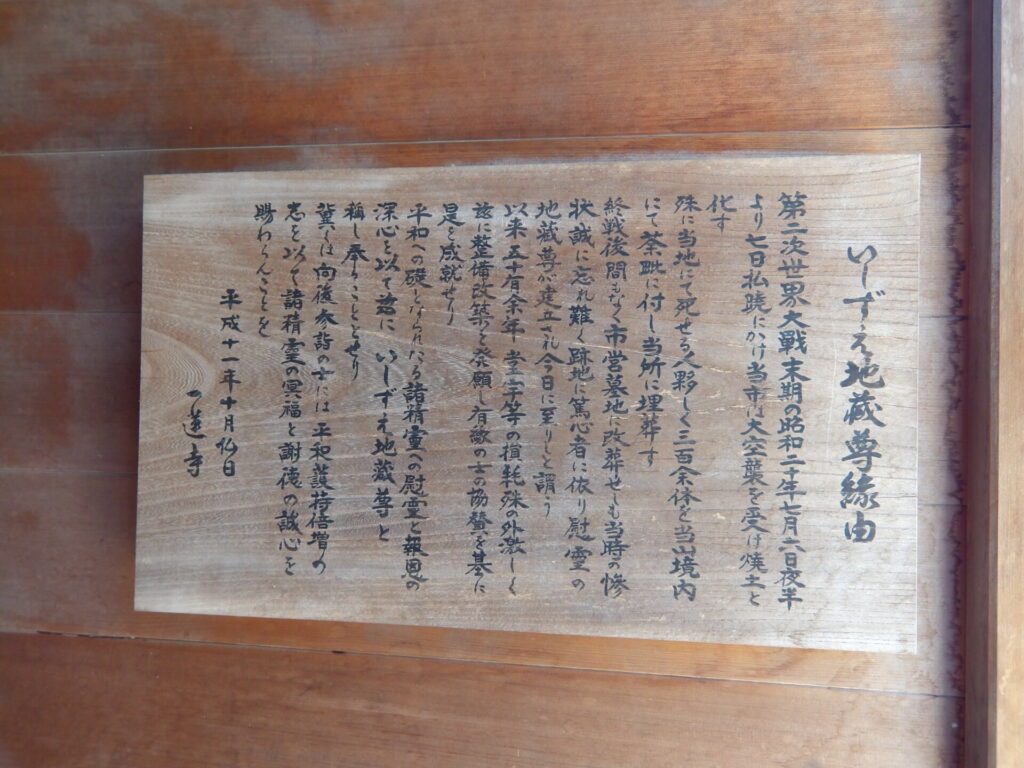 いしずえ地蔵尊縁由
第二次世界大戦末期の昭和二十年七月六日夜半
より七日払暁にかけ当市は大空襲を受け焼土と
化す
殊に当地にて死せる人夥しく三百余体を当山境内
にて荼毗に付し当所に埋葬す
終戦後間もなく市営墓地に改葬せしも当時の惨
状誠に忘れ難く跡地に篤心者に依り慰霊の
地蔵尊が建立され今日に至りしと謂う
以来五十有余年 堂宇等の損耗殊の外激しく
茲に整備改築を発願し有敵の士の協賛を基に
是を成就せり
平和への礎となられたる諸精霊への慰霊と報恩の
深心を以て茲に いしずえ地蔵尊と
称し奉ることとせり
冀くは向後参詣の士には平和護持倍増の
志を以て諸精霊の冥福と謝徳の誠心を
賜わらんことを
平成十一年十月 日
一蓮寺